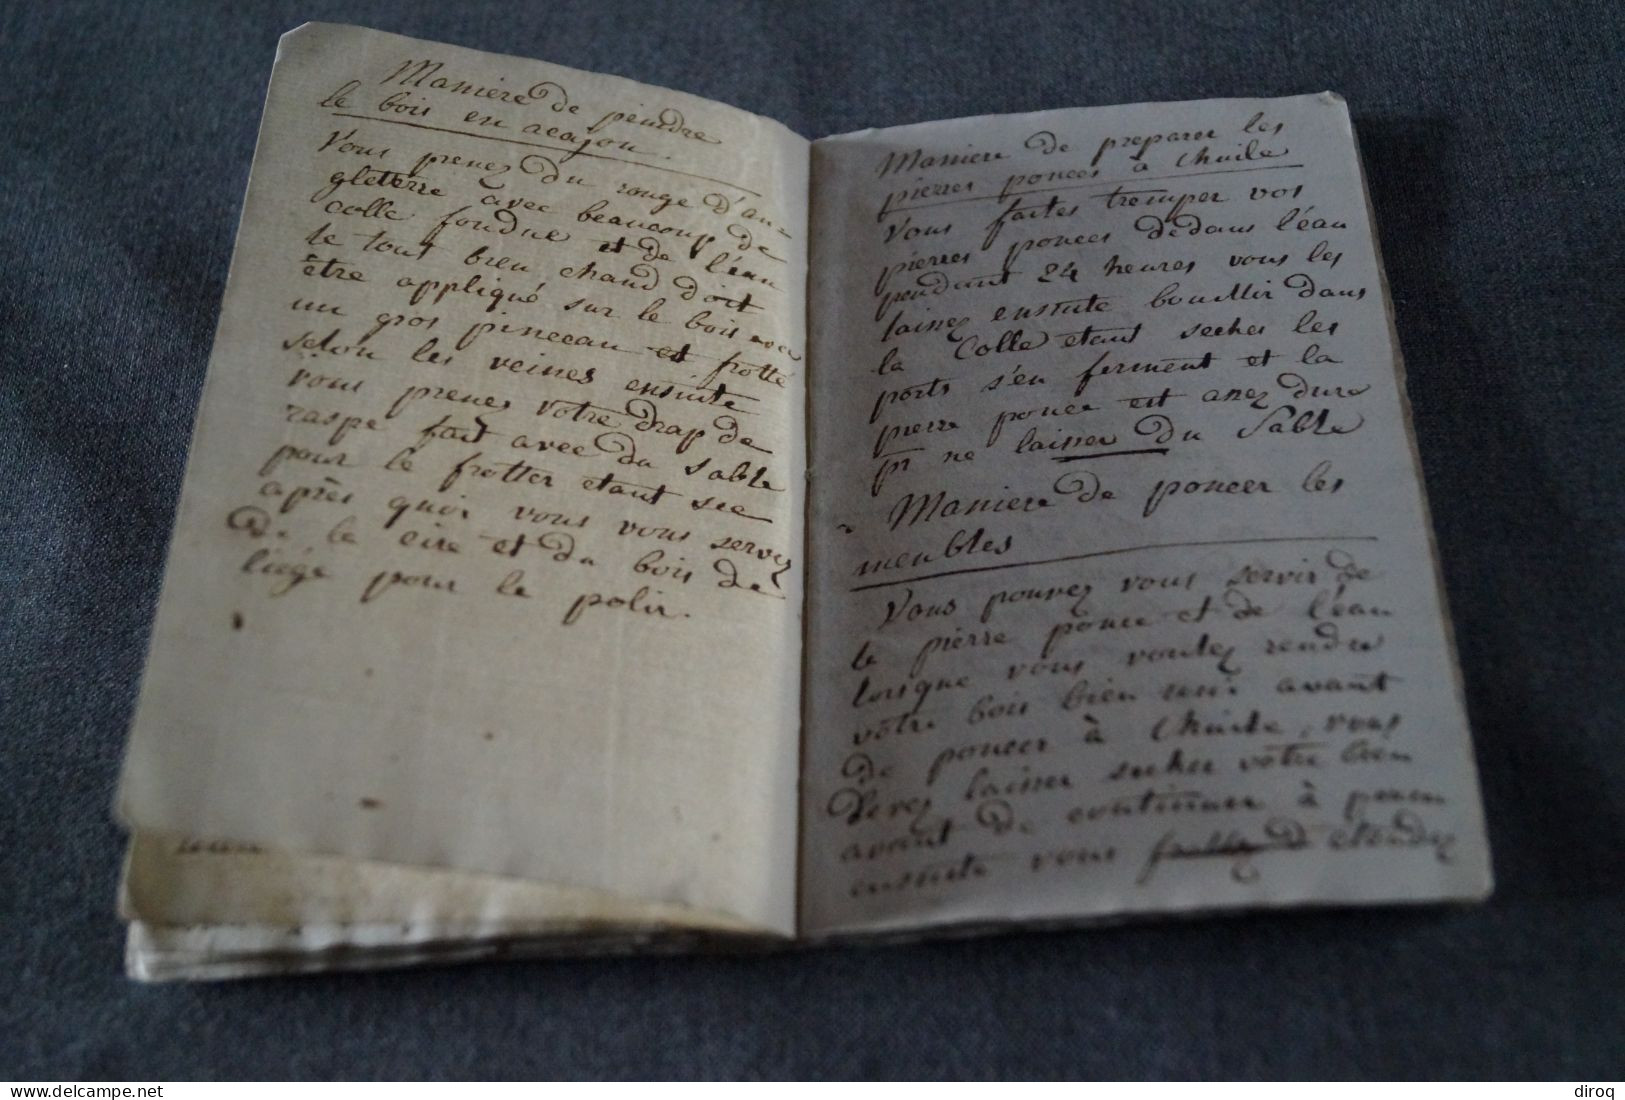 Maniere de peindre
le bois en acajou.
Vous prenez du rouge d'an=
gleterre avec beaucoup de
colle fondue et de l'eau
le tout bien chaud doit
être appliqué sur le bois avec
un gros pinceau et frotté
selon les veines ensuite
vous prenez votre drap de
raspe fait avec du sable
pour le frotter etant sec
après quoi vous vous servez
de la cire et du bois de
liége pour le polir.
Maniere de preparer les
pierres ponces à l'huile
Vous faites tremper vos
pierres ponces dedans l'eau
pendant 24 heures vous les
laissez ensuite bouillir dans
la Colle etant seches les
ports s'en ferment et la
pierre ponce est assez dure
pr ne laisser du Sable
Maniere de poncer les
meubles
Vous pouvez vous servir de
la pierre ponce et de l'eau
lorsque vous voulez rendre
votre bois bien uni avant
de poncer à l'huile, vous
devez laisser secher votre bien
avant de continuer à poncer
ensuite vous etendez
delcampe.net
diroq